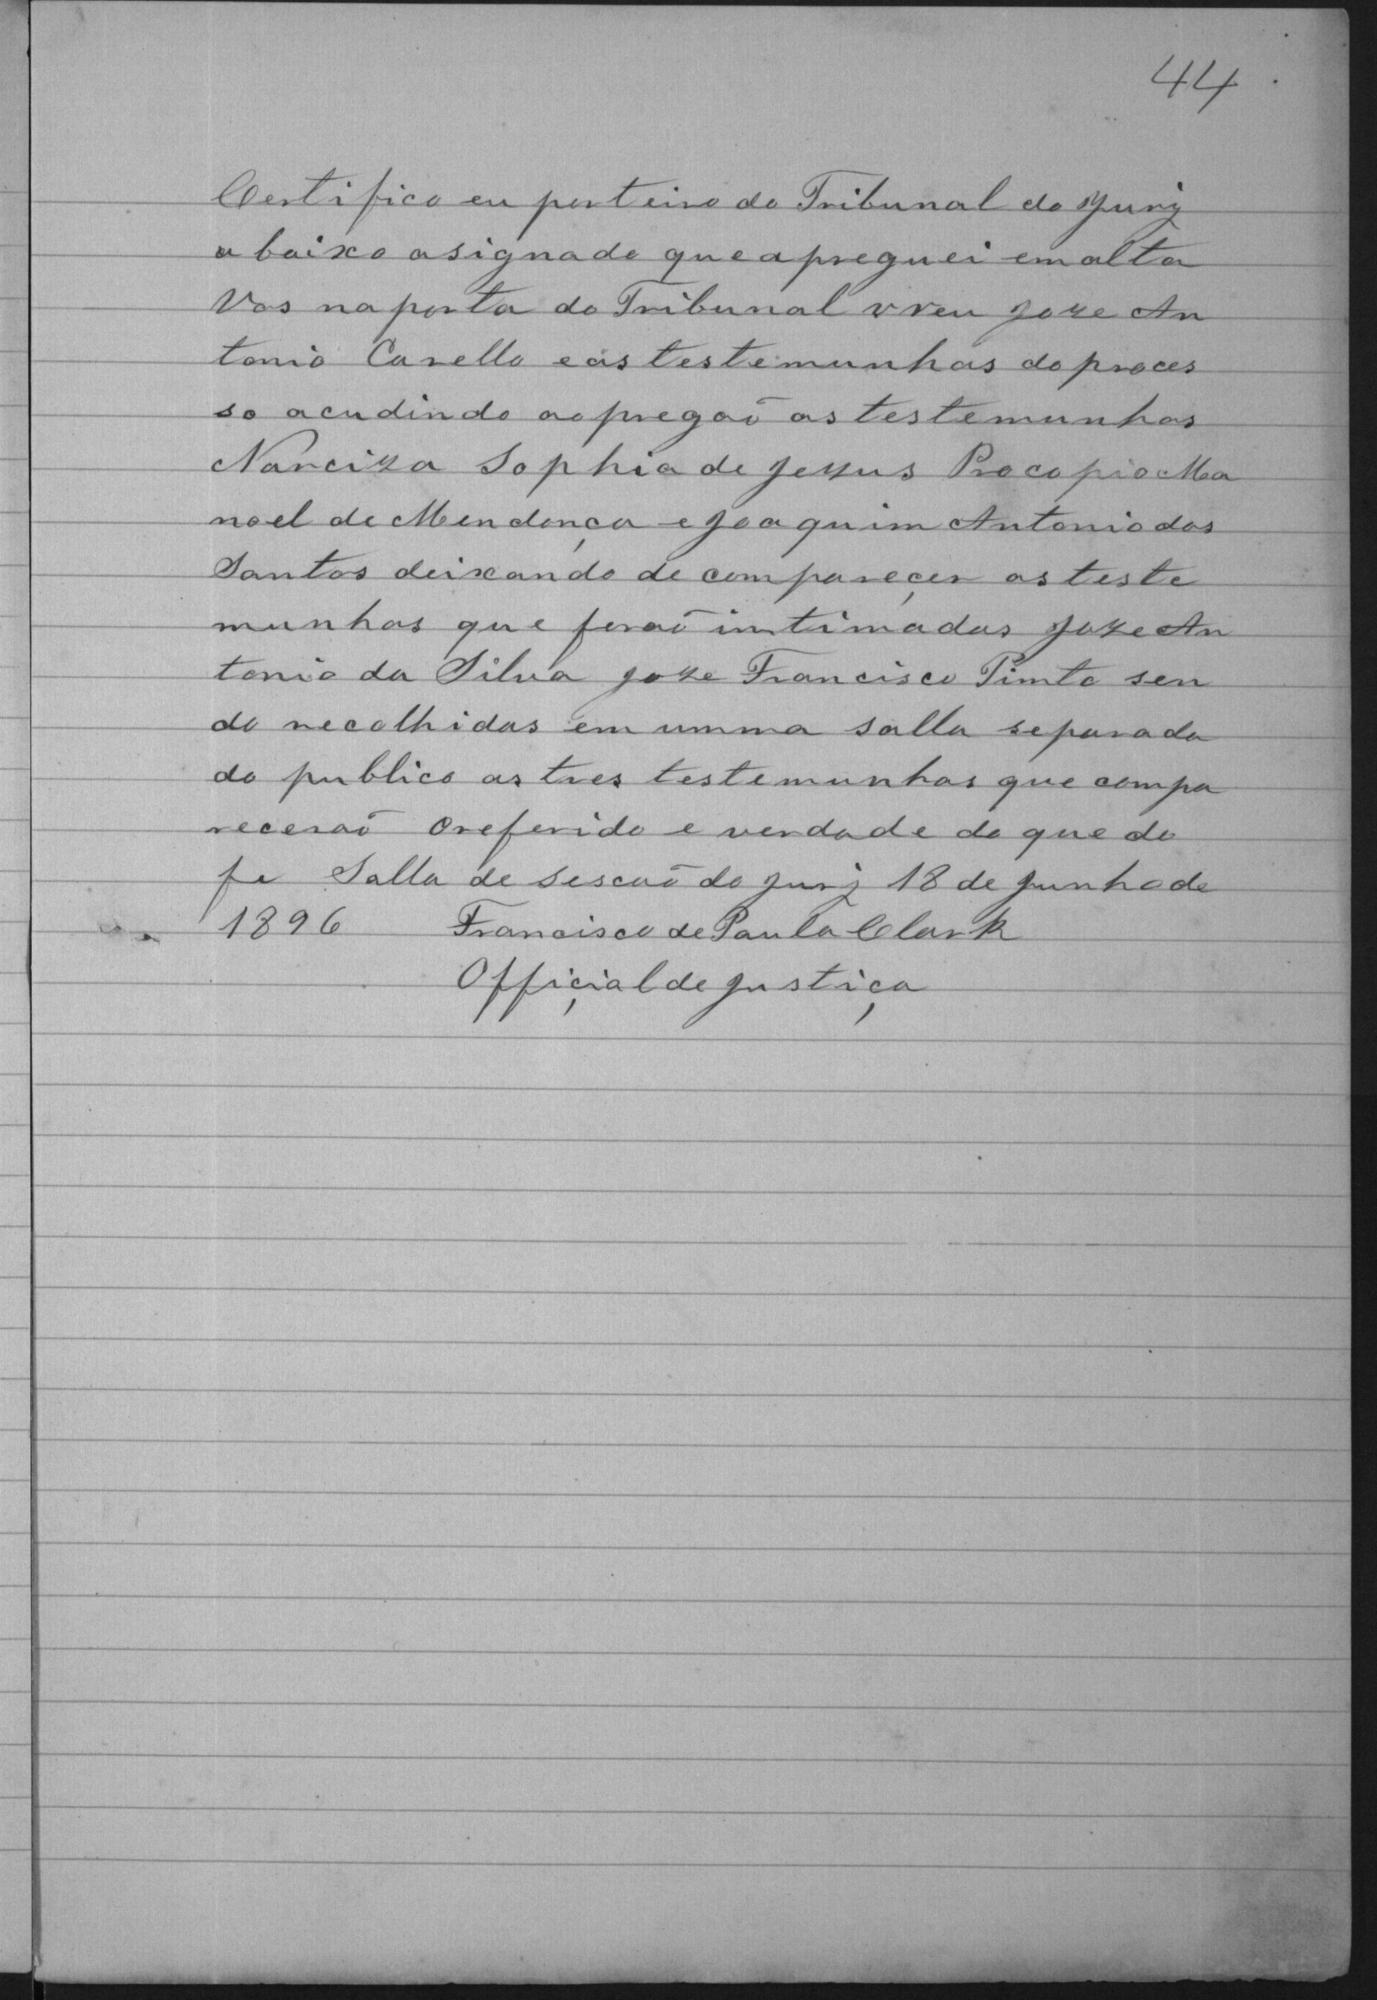 44
Certifico eu porteiro do Tribunal do Jury
abaixo asignado que apreguei em alta
Vos na porta do Tribunal o reu Joze An
tonio Carello e as testemunhas do proces
so acudindo ao pregaõ as testemunhas
Narciza Sophia de Jezus Procopio Ma
noel de Mendonça e Joaquim Antonio dos
Santos deixando de compareçer as teste
munhas que foraõ intimadas Joze An
tonio da Silva Joze Francisco Pinto sen
do recolhidas em umma salla separada
do publico as tres testemunhas que compa
receraõ O referido e verdade do que do
fe Salla de sescaõ do jury 18 de Junho de
1896 Francisco de Paula Clark
Offiçial de Justiça